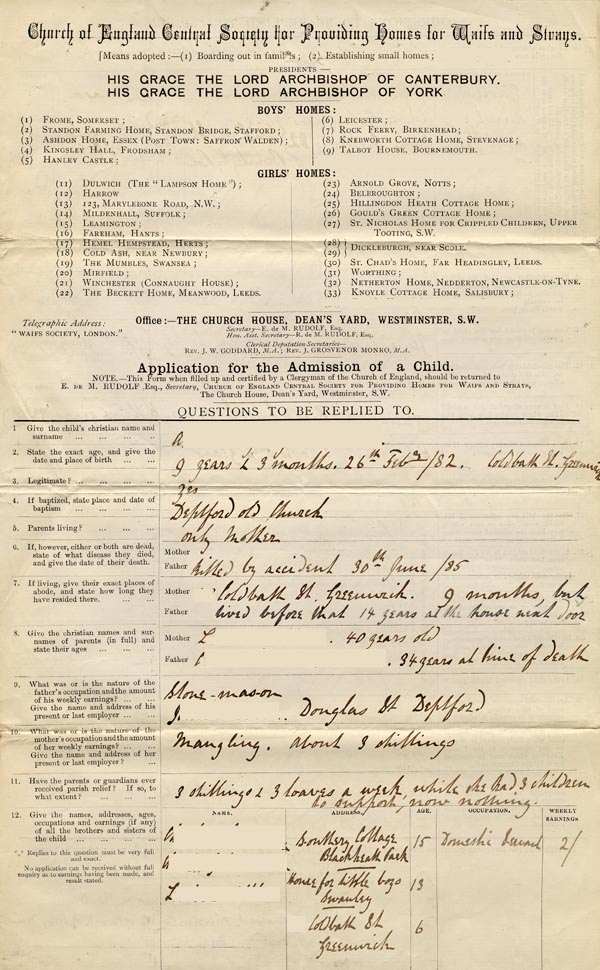 Church of England Central Society for Providing Homes for Waifs and Strays.
[Means adopted:—(1) Boarding out in families; (2) Establishing small homes;
PRESIDENTS—
HIS GRACE THE LORD ARCHBISHOP OF CANTERBURY.
HIS GRACE THE LORD ARCHBISHOP OF YORK
BOYS' HOMES:
(1) FROME, SOMERSET;
(2) STANDON FARMING HOME, STANDON BRIDGE, STAFFORD;
(3) ASHDON HOME, ESSEX (POST TOWN: SAFFRON WALDEN);
(4) KINGSLEY HALL, FRODSHAM;
(5) HANLEY CASTLE;
(6) LEICESTER;
(7) ROCK FERRY, BIRKENHEAD;
(8) KNEBWORTH COTTAGE HOME, STEVENAGE;
(9) TALBOT HOUSE, BOURNEMOUTH.
GIRLS' HOMES:
(11) DULWICH (THE "LAMPSON HOME");
(12) HARROW
(13) 123, MARYLEBONE ROAD, N.W.;
(14) MILDENHALL, SUFFOLK;
(15) LEAMINGTON;
(16) FAREHAM, HANTS;
(17) HEMEL HEMPSTEAD, HERTS;
(18) COLD ASH, NEAR NEWBURY;
(19) THE MUMBLES, SWANSEA;
(20) MIRFIELD;
(21) WINCHESTER (CONNAUGHT HOUSE);
(22) THE BECKETT HOME, MEANWOOD, LEEDS.
(23) ARNOLD GROVE, NOTTS;
(24) BELBROUGHTON;
(25) HILLINGDON HEATH COTTAGE HOME;
(26) GOULD'S GREEN COTTAGE HOME;
(27) ST. NICHOLAS HOME FOR CRIPPLED CHILDREN, UPPER
TOOTING, S.W.
(28)
(29) DICKLEBURGH, NEAR SCOLE.
(30) ST. CHAD'S HOME, FAR HEADINGLEY, LEEDS.
(31) WORTHING;
(32) NETHERTON HOME, NEDDERTON, NEWCASTLE-ON-TYNE.
(33) KNOYLE COTTAGE HOME, SALISBURY;
Telegraphic Address:
"WAIFS SOCIETY, LONDON."
Office:—THE CHURCH HOUSE, DEAN'S YARD, WESTMINSTER, S.W.
Secretary—E. DE M. RUDOLF, ESQ.
Hon. Asst. Secretary—R. DE M. RUDOLF, ESQ.
Clerical Deputation Secretaries—
REV. J. W. GODDARD, M.A.; REV. J. GROSVENOR MONRO, M.A.
Application for the Admission of a Child.
NOTE.—This Form when filled up and certified by a Clergyman of the Church of England, should be returned to
E. DE M. RUDOLF Esq., Secretary, CHURCH OF ENGLAND CENTRAL SOCIETY FOR PROVIDING HOMES FOR WAIFS AND STRAYS,
The Church House, Dean's Yard, Westminster, S.W.
QUESTIONS TO BE REPLIED TO.
1 Give the child's christian name and
surname ... ... ... ...
a
2. State the exact age, and give the
date and place of birth ... ...
9 years & 3 months. 26th Feby /82. Coldbath St. Greenwich
3. Legitimate? ... ... ... ...
yes
4. If baptized, state place and date of
baptism ... ... ... ...
Deptford old Church
5. Parents living? ... ... ...
only Mother
6. If, however, either or both are dead,
state of what disease they died,
and give the date of their death.
Mother
Father killed by accident 30th June /85
7. If living, give their exact places of
abode, and state how long they
have resided there. ... ...
Mother Coldbath St. Greenwich. 9 months, but
Father lived before that 14 years at the house next door
8. Give the christian names and sur-
names of parents (in full) and
state their ages ... ...
Mother L . 40 years old
Father . 34 years at time of death
9. What was or is the nature of the
father's occupation and the amount
of his weekly earnings? ... ...
Give the name and address of his
present or last employer ... ...
Stone-mason
J. Douglas St Deptford
10. What was or is the nature of the
mother's occupation and the amount
of her weekly earnings? ... ...
Give the name and address of her
present or last employer? ...
Mangling. about 3 shillings
11. Have the parents or guardians ever
received parish relief? If so, to
what extent? ... ... ...
3 shillings & 3 loaves a week while she had 3 children
to support, now nothing.
12. Give the names, addresses, ages,
occupations and earnings (if any)
of all the brothers and sisters of
the child ... ... ... ...
Replies to this question must be very full
and exact.
No application can be received without full
enquiry as to earnings having been made, and
result stated.
NAME. ADDRESS. AGE. OCCUPATION. WEEKLY
EARNINGS
Cottage 15 Domestic Servant 2/
Blackheath Park
Home for little boys 13
Swanley
L Coldbath St 6
Greenwich